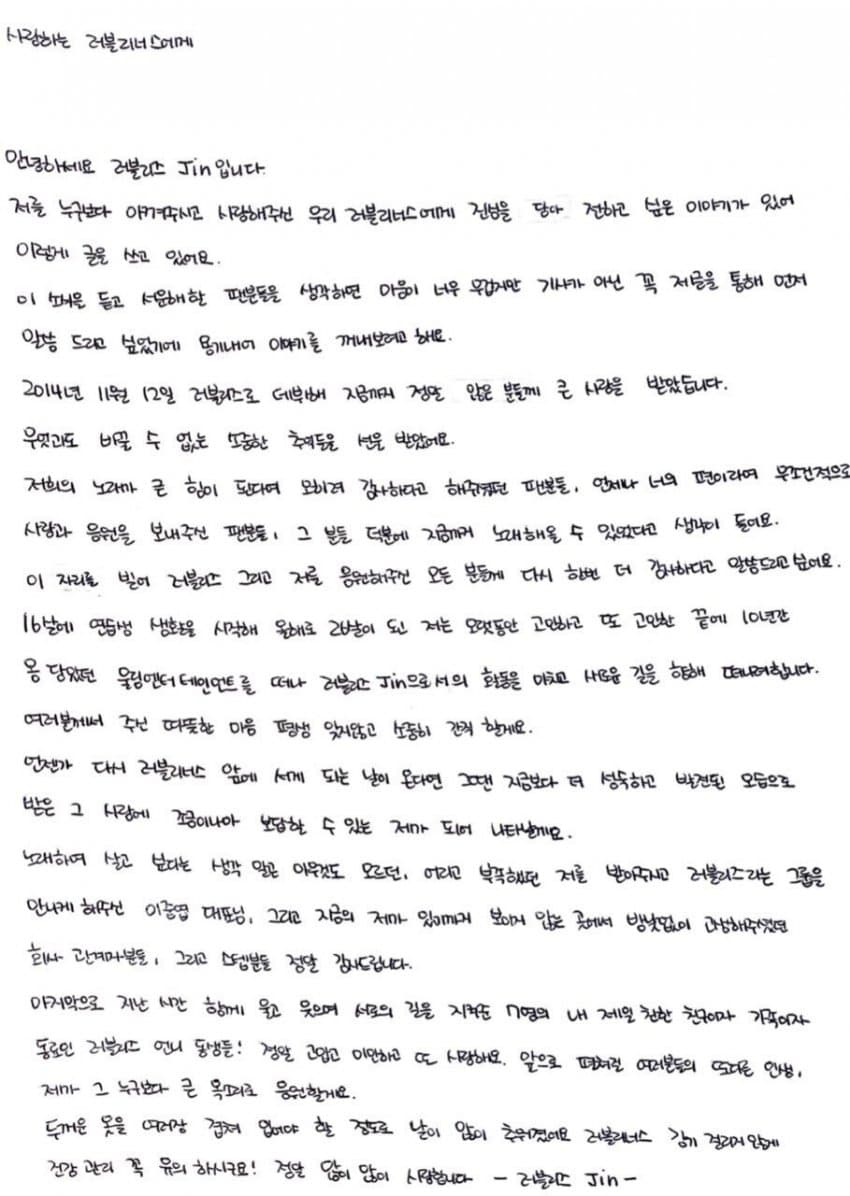 사랑하는 러블리너스에게
안녕하세요 러블리즈 Jin입니다.
저를 누구보다 아껴주시고 사랑해주신 우리 러블리너스에게 진심을 담아 전하고 싶은 이야기가 있어
이렇게 글을 쓰고 있어요.
이 소식을 듣고 서운해할 팬분들을 생각하면 마음이 너무 무겁지만 기사가 아닌 꼭 저글을 통해 먼저
말씀 드리고 싶었기에 용기내어 이야기를 꺼내보려고 해요.
2014년 11월 12일 러블리즈로 데뷔해 지금까지 정말 많은 분들께 큰 사랑을 받았습니다.
무엇과도 바꿀 수 없는 소중한 추억들을 선물 받았어요.
저희의 노래가 큰 힘이 된다며 오히려 감사하다고 해주셨던 팬분들, 언제나 너의 편이라며 무조건적으로
사랑과 응원을 보내주신 팬분들, 그 분들 덕분에 지금까지 노래해올 수 있었다고 생각이 들어요.
이 자리를 빌어 러블리즈 그리고 저를 응원해주신 모든 분들께 다시 한번 더 감사하다고 말씀드리고싶어요.
16살에 연습생 생활을 시작해 올해로 26살이 된 저는 오랫동안 고민하고 또 고민한 끝에 10년간
몸 담았던 울림엔터테인먼트를 떠나 러블리즈 Jin으로서의 활동을 마치고 새로운 길을 향해 떠나려합니다.
여러분께서 주신 따뜻한 마음 평생 잊지않고 소중히 간직 할게요.
언젠가 다시 러블리너스 앞에 서게 되는 날이 온다면 그땐 지금보다 더 성숙하고 발전된 모습으로
받은 그 사랑에 조금이나마 보답할 수 있는 제가 되어 나타날게요.
노래하며 살고 싶다는 생각 말곤 아무것도 모르던, 어리고 부족했던 저를 받아주시고 러블리즈라는 그룹을
만나게 해주신 이중엽 대표님, 그리고 지금의 제가 있기까지 보이지 않는 곳에서 밤낮없이 고생해주셨던
회사 관계자분들, 그리고 스텝분들 정말 감사드립니다.
마지막으로 지난 시간 함께 울고 웃으며 서로의 길을 지켜준 7명의 내 제일 친한 친구이자 가족이자
동료인 러블리즈 언니 동생들! 정말 고맙고 미안하고 또 사랑해요. 앞으로 펼쳐질 여러분들의 또다른 인생,
제가 그 누구보다 큰 목소리로 응원할게요.
두꺼운 옷을 여러장 겹쳐 입어야 할 정도로 날이 많이 추워졌어요 러블리너스 감기 걸리지않게
건강 관리 꼭 유의 하시구요! 정말 많이 많이 사랑합니다 - 러블리즈 Jin -